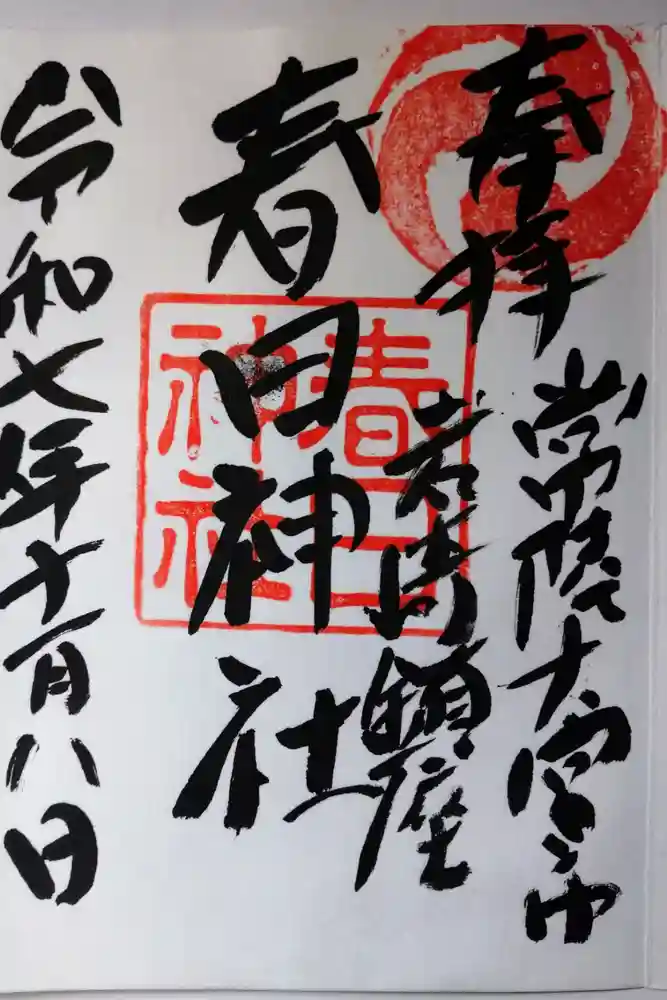 奉拝 常陸大宮市
岩崎鎮座
春日神社
春日
神社
令和七年十一月八日